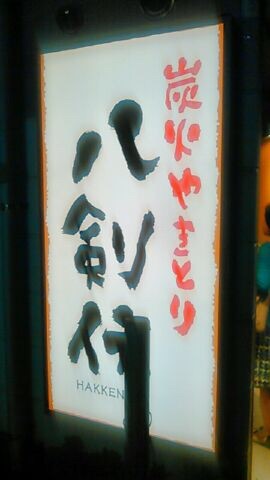 炭火やきとり
八剣伝
HAKKEN